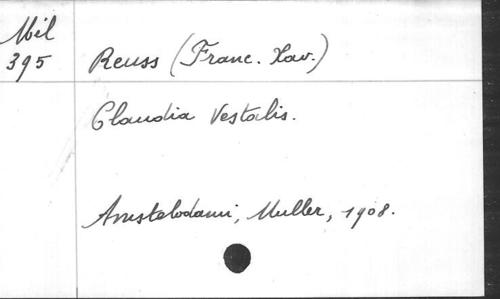 Mil
395
Reuss (Franc. Xav.)
Claudia Vestalis.
Amstelodami, Muller, 1908.